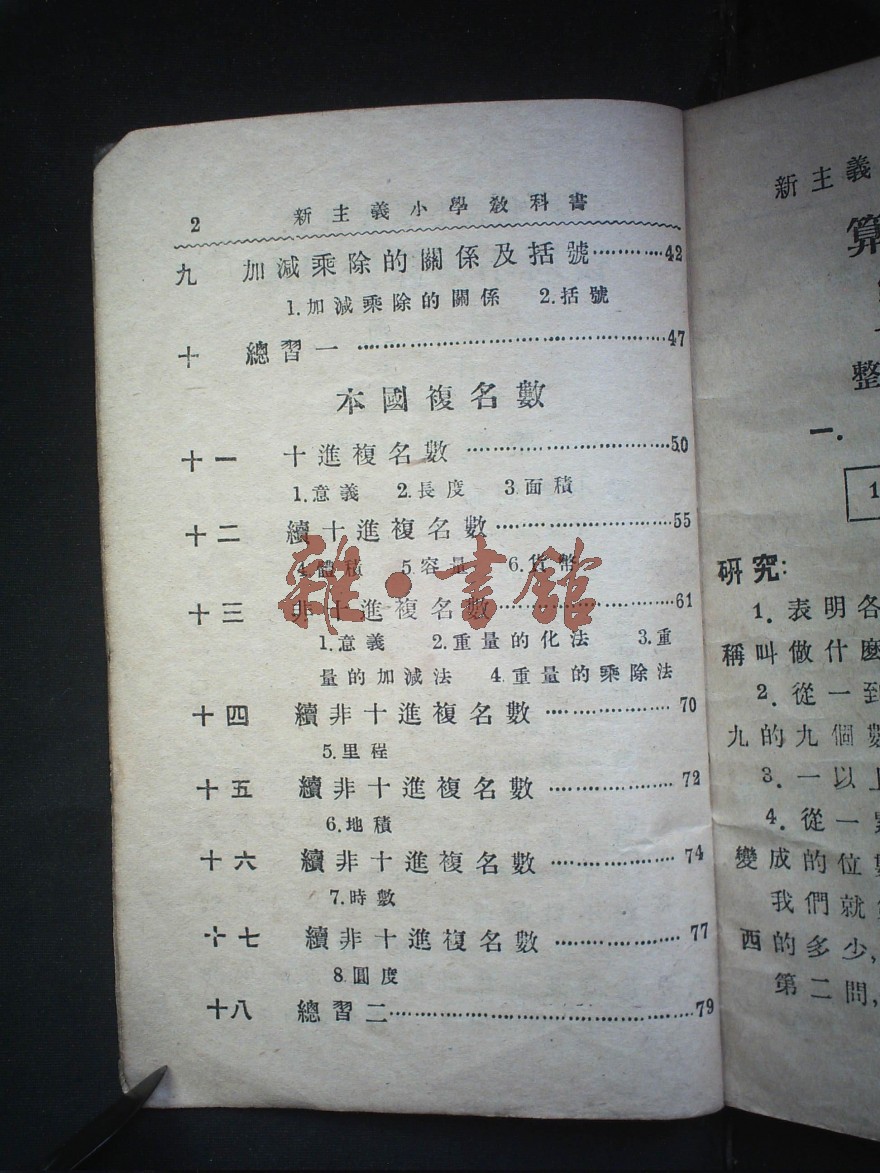 2 新主義小學敎科書
九 加減乘除的關係及括號…………42
1.加減乘除的關係 2.括號
十 總習一……………………………47
本國複名數
十一 十進複名數……………………50
1.意義 2.長度 3.面積
十二 續十進複名數…………………55
4.體積 5.容量 6.貨幣
十三 非十進複名數…………………61
1.意義 2.重量的化法 3.重
量的加減法 4.重量的乘除法
十四 續非十進複名數………………70
5.里程
十五 續非十進複名數………………72
6.地積
十六 續非十進複名數………………74
7.時數
十七 續非十進複名數………………77
8.圓度
十八 總習二…………………………79
雜·書館
新主義
算
整
一.
1
研究:
1.表明各
稱叫做什麽
2.從一到
九的九個數
3.一以上
4.從一點
變成的位數
我們就
西的多少,
第二問,